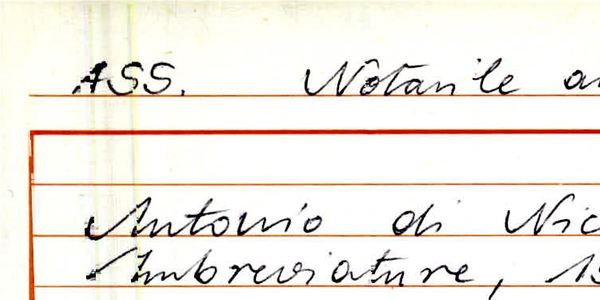 ASS. Notarile a
Antonio di Nic
Imbreviature, 13